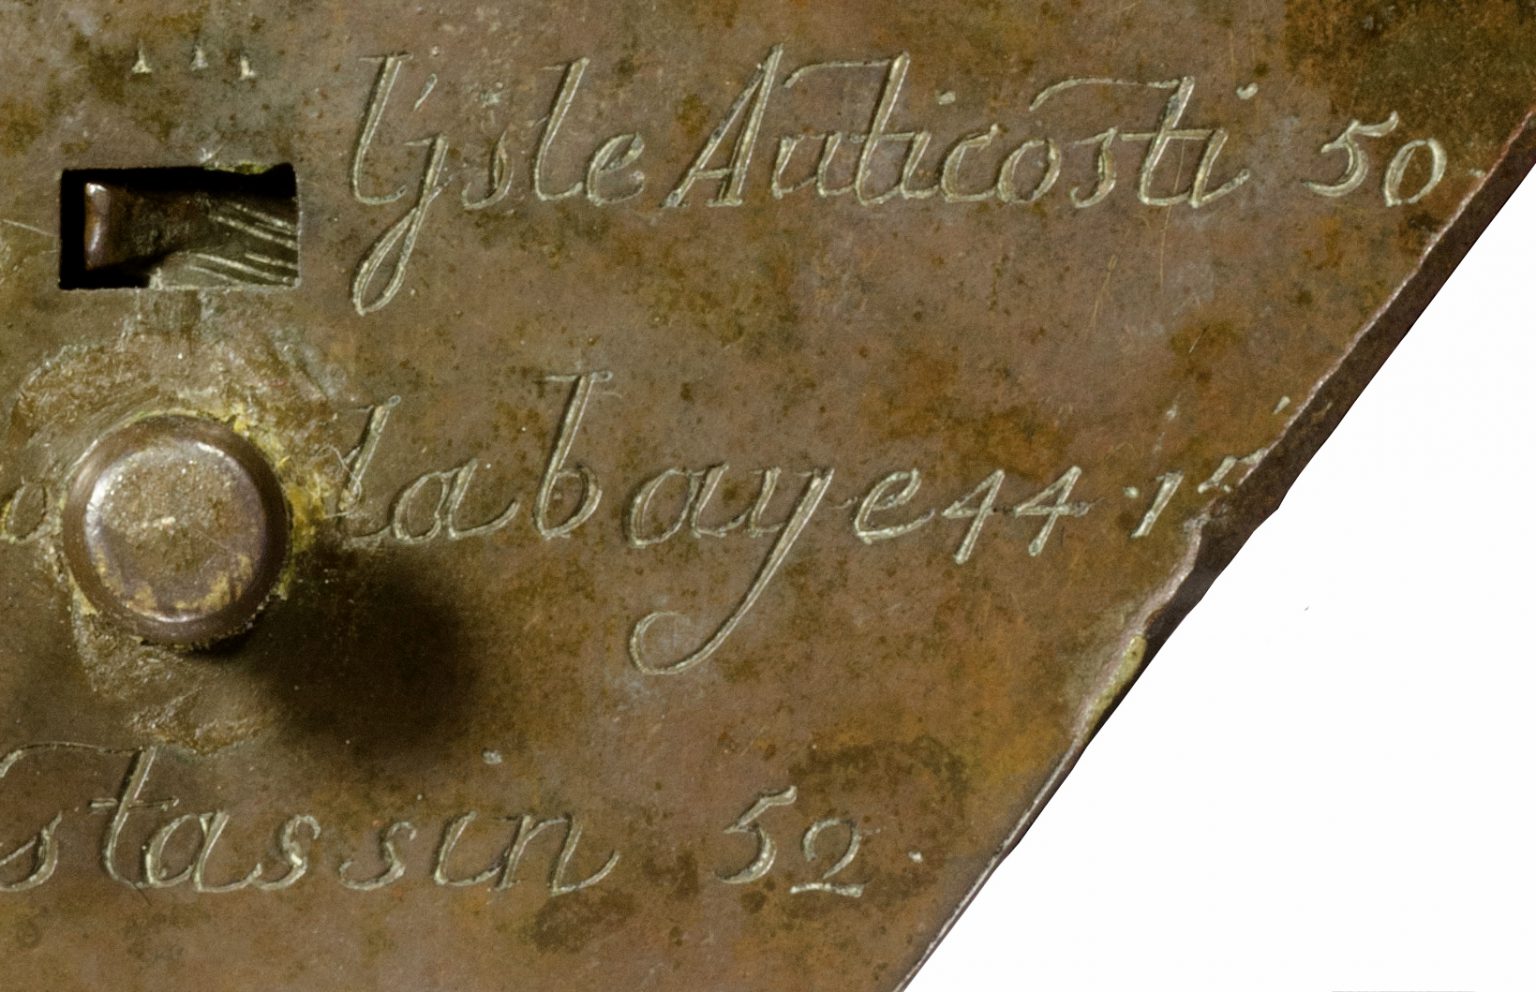 l'ysle Anticosti 50
labaye 44 · 1
stassin 52 ·